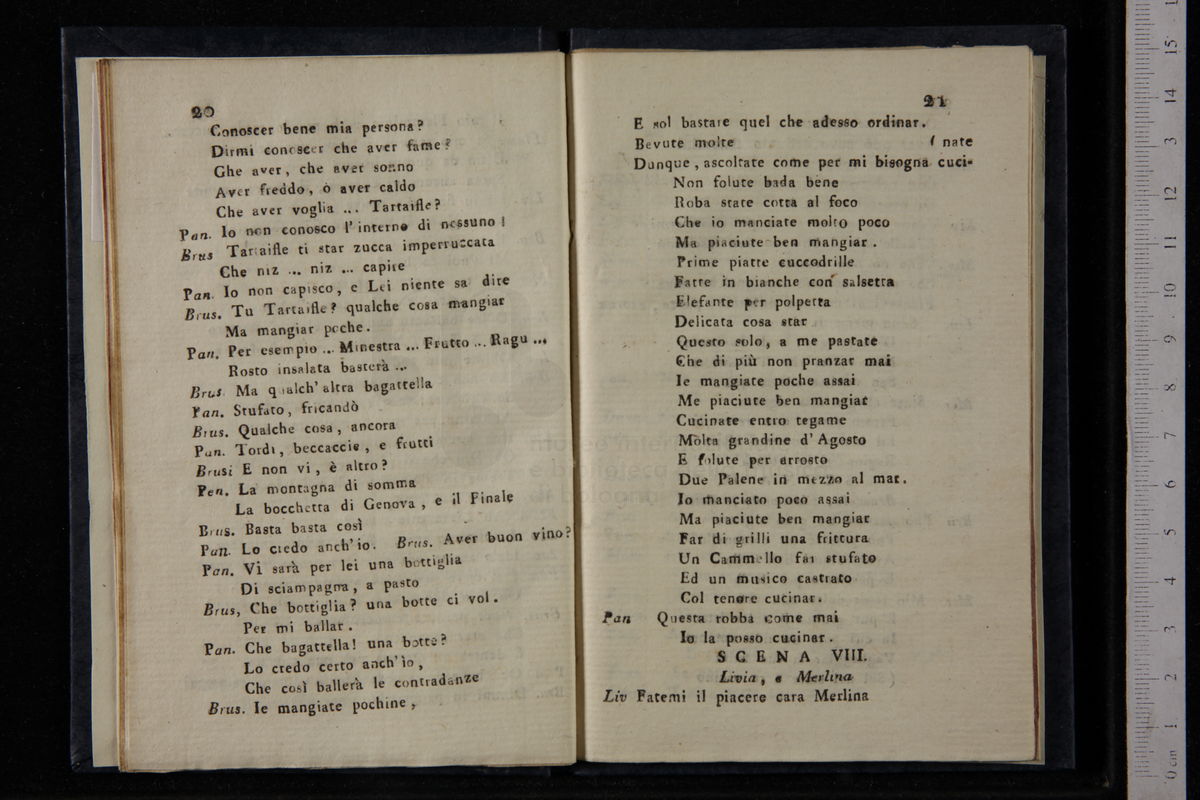 20
Conoscer bene mia persona?
Dirmi conoscer che aver fame?
Che aver, che aver sonno
Aver freddo, ò aver caldo
Che aver voglia ... Tartaifle?
Pan. Io non conosco l'interno di nessuno!
Brus Tartaifle ti star zucca imperruccata
Che niz ... niz ... capite
Pan. Io non capisco, e Lei niente sa dire
Brus. Tu Tartaifle? qualche cosa mangiar
Ma mangiar poche.
Pan. Per esempio ... Minestra ... Frutto ... Ragu ...
Rosto insalata basterà ...
Brus. Ma qualch'altra bagattella
Pan. Stufato, fricandò
Brus. Qualche cosa, ancora
Pan. Tordi, beccaccie, e frutti
Brusi E non vi, è altro?
Pen. La montagna di somma
La bocchetta di Genova, e il Finale
Brus. Basta basta così
Pan. Lo credo anch'io. Brus. Aver buon vino?
Pan. Vi sarà per lei una bottiglia
Di sciampagna, a pasto
Brus, Che bottiglia? una botte ci vol.
Per mi ballar.
Pan. Che bagattella! una botte?
Lo credo certo anch'io,
Che così ballerà le contradanze
Brus. Ie mangiate pochine,
21
E sol bastare quel che adesso ordinar.
Bevute molte ( nate
Dunque, ascoltate come per mi bisogna cuci-
Non folute bada bene
Roba state cotta al foco
Che io manciate molto poco
Ma piaciute ben mangiar.
Prime piatte cuccodrille
Fatte in bianche con salsetta
Elefante per polpetta
Delicata cosa star
Questo solo, a me pastate
Che di più non pranzar mai
Ie mangiate poche assai
Me piaciute ben mangiar
Cucinate entro tegame
Molta grandine d'Agosto
E folute per arrosto
Due Palene in mezzo al mar.
Io manciato poco assai
Ma piaciute ben mangiar
Far di grilli una frittura
Un Cammello far stufato
Ed un musico castrato
Col tenore cucinar.
Pan Questa robba come mai
Io la posso cucinar.
SCENA VIII.
Livia, e Merlina
Liv Fatemi il piacere cara Merlina